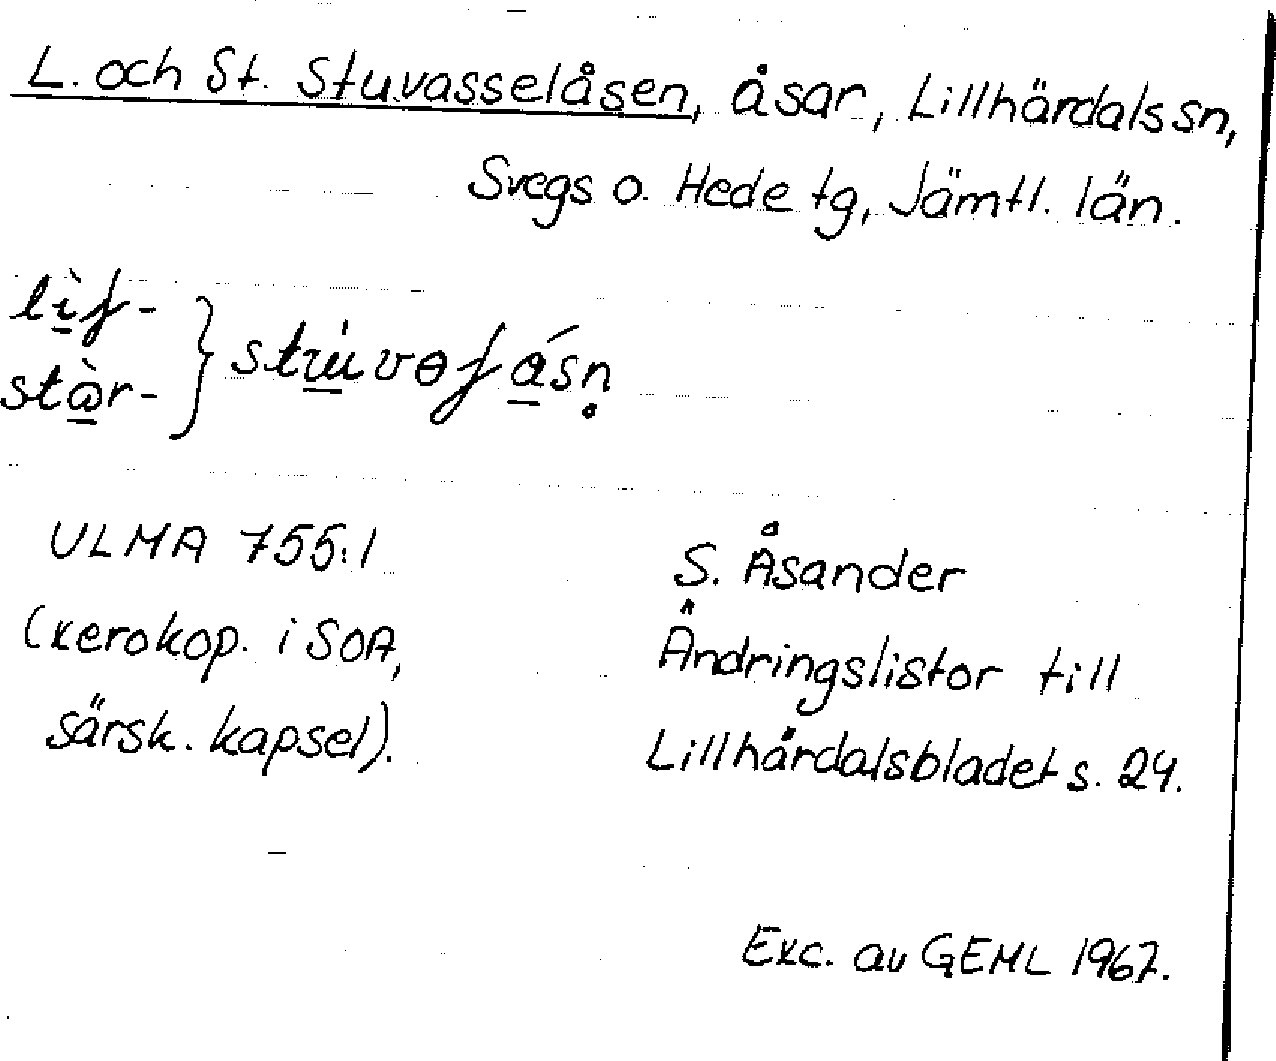 L. och St. Stuvasselåsen, åsar, Lillhärdals sn,
Svegs o. Hede tg, Jämtl. län.
ULMA 755:1
(xerokop. i SOA,
särsk. kapsel).
S. Åsander
Ändringslistor till
Lillhärdalsbladet s. 24.
Exc. av GEML 1967.